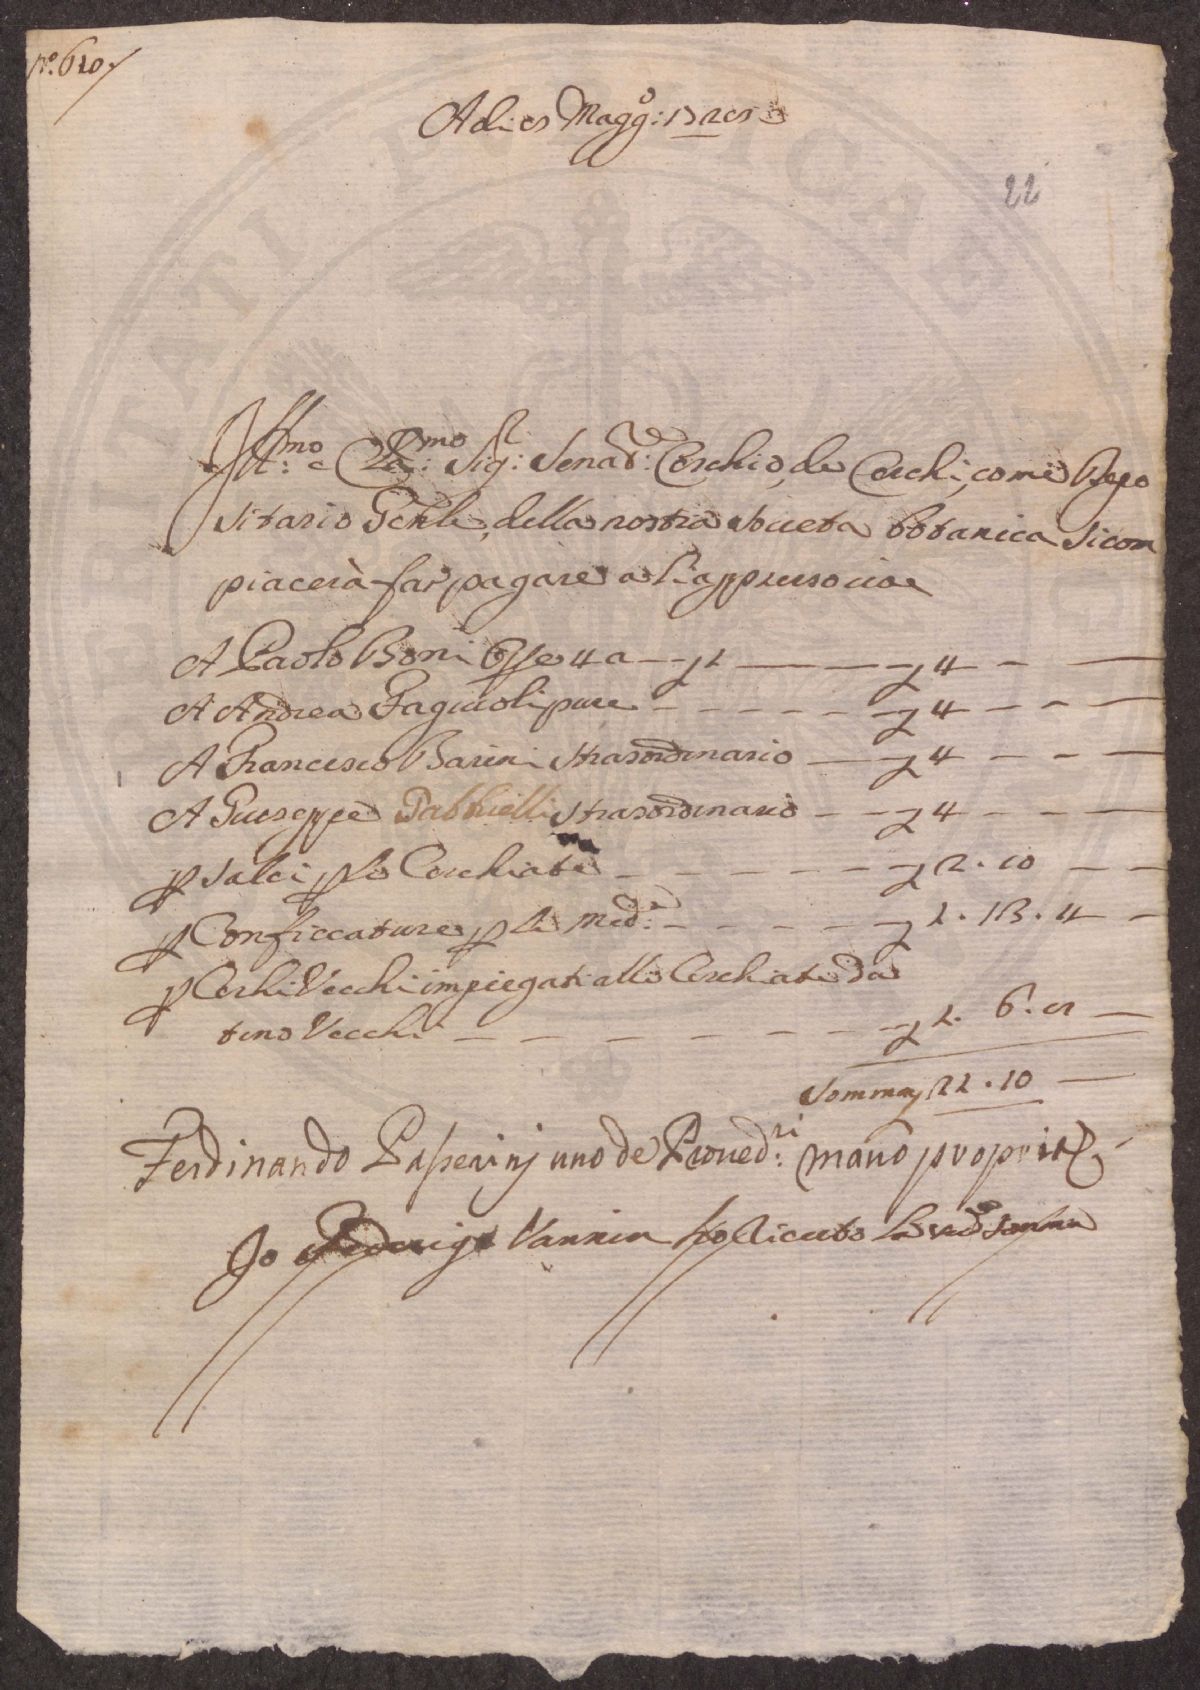 N.º 610
Adi Magg.º:
22
Ill:mo e Cla:mo Sig:r Senad:e Cerchio de Cerchi, come Depo
sitario Gen.le della nostra Società bottanica si com
piacerà far pagare a l'appresso cioè
A Paolo Boni Opre 4 a — £ 1 — £ 4 —
A Andrea Fagiuoli pure — £ 4 —
A Francesco Barini straordinario — £ 4 —
A Giuseppe Gabbrielli straordinario — £ 4 —
p Salci p le Cerchiate — £ 2.10 —
p Conficcature p le med:e — £ 1.13.4 —
p Cerchi Vecchi impiegati alle Cerchiate da
tino Vecchi — £ 2. 6.
Somma £ 22.10 —
Ferdinando Passerinj uno de Proved:ri mano propria
Io Federigo Vannin ho ricevto la sud:a somma